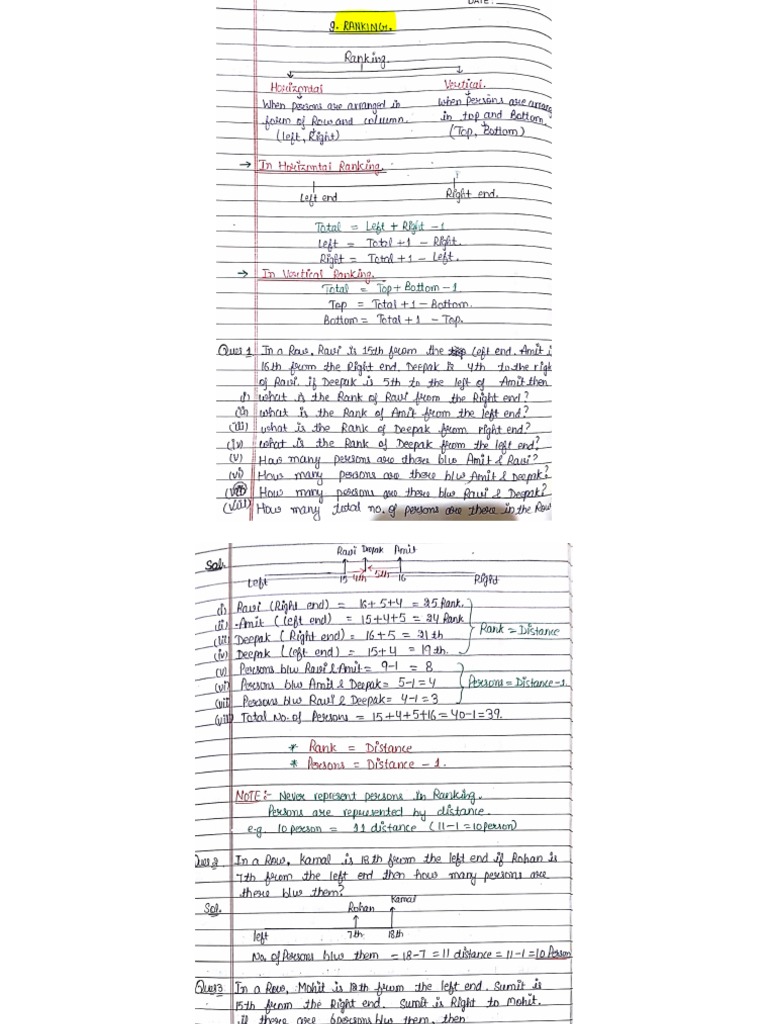 DATE:
9. RANKING.
Ranking.
Horizontal
Vertical.
When persons are arranged in
form of Row and column.
(Left, Right)
When persons are arran
in top and Bottom.
(Top, Bottom)
→ In Horizontal Ranking.
Left end
Right end.
Total = Left + Right -1
Left = Total +1 - Right.
Right = Total +1 - Left.
→ In Vertical Ranking.
Total = Top + Bottom -1.
Top = Total +1 - Bottom.
Bottom = Total +1 - Top.
Ques 1 In a Row, Ravi is 15th from the Left end. Amit i
16th from the Right end. Deepak is 4th to the righ
of Ravi. if Deepak is 5th to the left of Amit then
(i) what is the Rank of Ravi from the Right end?
(ii) what is the Rank of Amit from the left end?
(iii) what is the Rank of Deepak from right end?
(iv) what is the Rank of Deepak from the left end?
(v) How many persons are there b/w Amit & Ravi?
(vi) How many persons are there b/w Amit & Deepak?
(vii) How many persons are there b/w Ravi & Deepak?
(viii) How many total no. of persons are there in the Row
Sol.
Ravi Deepak Amit
Left 15 4th 5th 16 Right
(i) Ravi (Right end) = 16+5+4 = 25 Rank.
(ii) Amit (left end) = 15+4+5 = 24 Rank
(iii) Deepak (Right end) = 16+5 = 21th
(iv) Deepak (left end) = 15+4 = 19th.
Rank = Distance
(v) Persons b/w Ravi & Amit = 9-1 = 8
(vi) Persons b/w Amit & Deepak = 5-1=4
(vii) Persons b/w Ravi & Deepak = 4-1=3
Persons = Distance-1.
(viii) Total No. of Persons = 15+4+5+16=40-1=39.
* Rank = Distance
* Persons = Distance - 1.
NOTE:- Never represent persons in Ranking.
Persons are represented by distance.
e.g. 10 person = 11 distance (11-1=10 person)
Ques 2 In a Row, Kamal is 18th from the left end if Rohan is
7th from the left end then how many persons are
there b/w them?
Sol.
Rohan Kamal
left 7th 18th
No. of Persons b/w them = 18-7 = 11 distance = 11-1 = 10 Person
Ques 3 In a Row, Mohit is 18th from the left end. Sumit is
15th from the Right end. Sumit is Right to Mohit.
if there are 6 persons b/w them, then